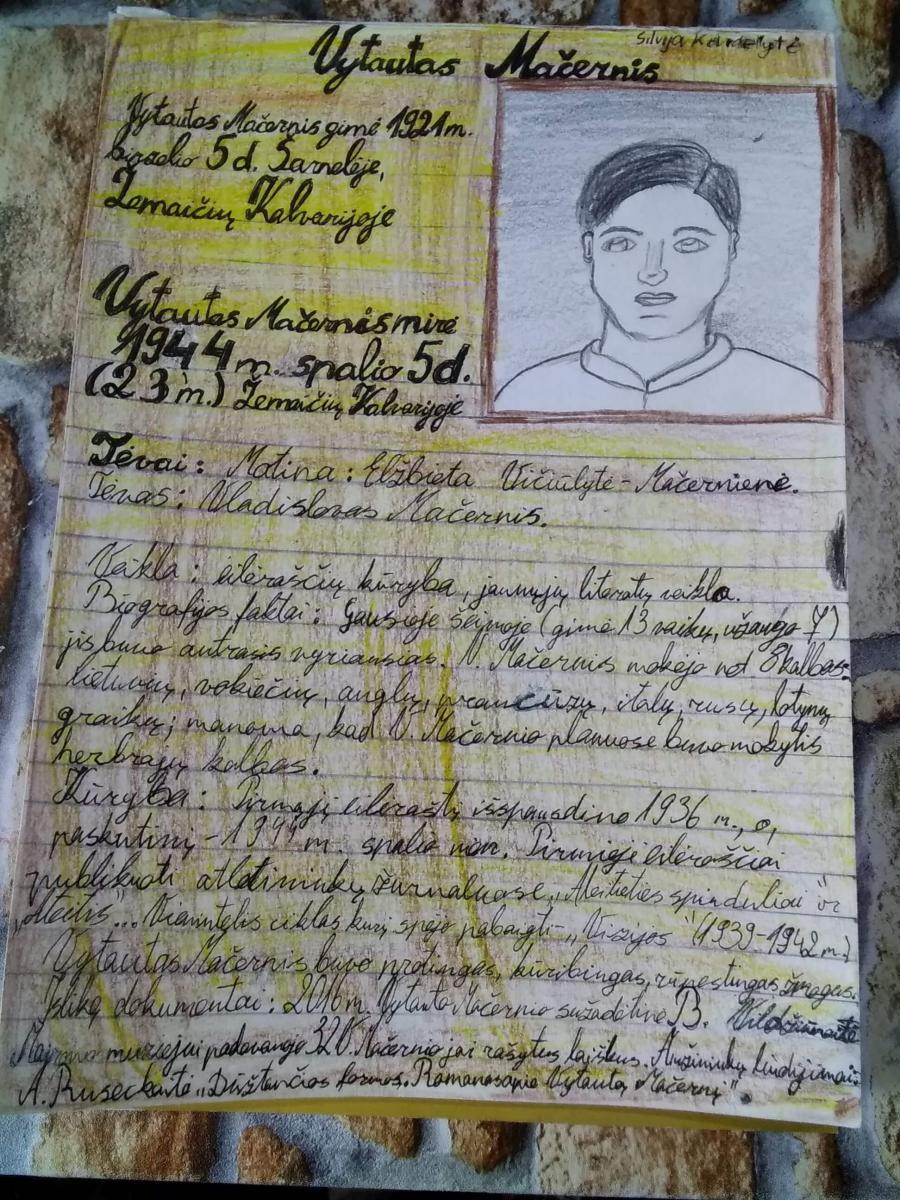 Silvija
Vytautas Mačernis
Vytautas Mačernis gimė 1921 m.
birželio 5 d. Šarnelėje,
Žemaičių Kalvarijoje
Vytautas Mačernis mirė
1944 m. spalio 5 d.
(23 m.) Žemaičių Kalvarijoje
Tėvai: Motina: Elžbieta Vičiūlytė-Mačernienė.
Tėvas: Vladislovas Mačernis.
Veikla: eilėraščių kūryba, jaunųjų literatų veikla.
Biografijos faktai: Gausioje šeimoje (gimė 13 vaikų, užaugo 7)
jis buvo antrasis vyriausias. V. Mačernis mokėjo net 8 kalbas:
lietuvių, vokiečių, anglų, prancūzų, italų, rusų, lotynų
graikų; manoma, kad V. Mačernio planuose buvo mokytis
herbrajų kalbos.
Kūryba: Pirmąjį eilėraštį išspausdino 1936 m., o,
paskutinį - 1944 m. spalio mėn. Pirmieji eilėraščiai
publikuoti ateitininkų žurnaluose „Ateities spinduliai" ir
„Ateitis"... Vienintelis ciklas kurį spėjo pabaigti - „Vizijos" (1939-1942 m.)
Vytautas Mačernis buvo protingas, kūribingas, rūpestingas žmogus.
Išlikę dokumentai: 2016 m. Vytauto Mačernio sužadėtinė B. Vildžiūnaitė
Maironio muziejui padovanojo 32 V. Mačernio jai rašytus laiškus. Amžininkų liudijimai:
A. Ruseckaitė „Dūžtančios formos. Romanas apie Vytautą Mačernį".